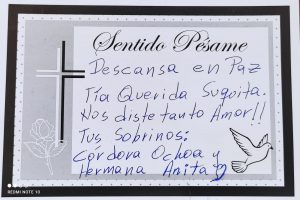 Sentido Pésame
Descansa en Paz
Tía Querida Suquita.
Nos diste tanto Amor!!
Tus Sobrinos:
Córdova Ochoa y
Hermana Anita
REDMI NOTE 10